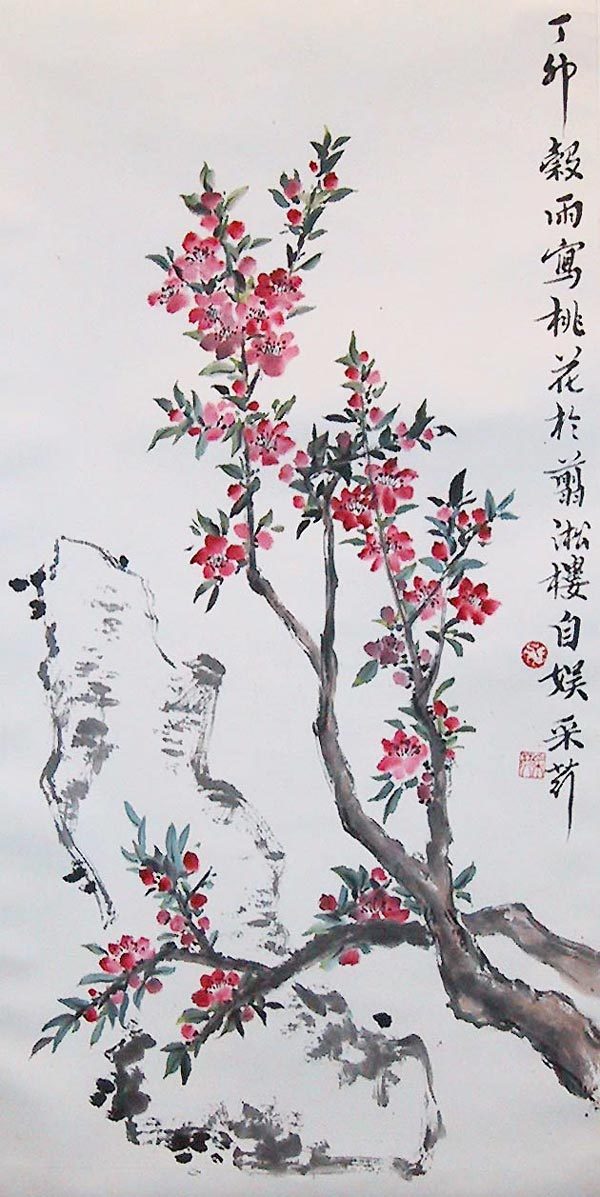 丁卯穀雨寫桃花於翦淞樓自娛采荇